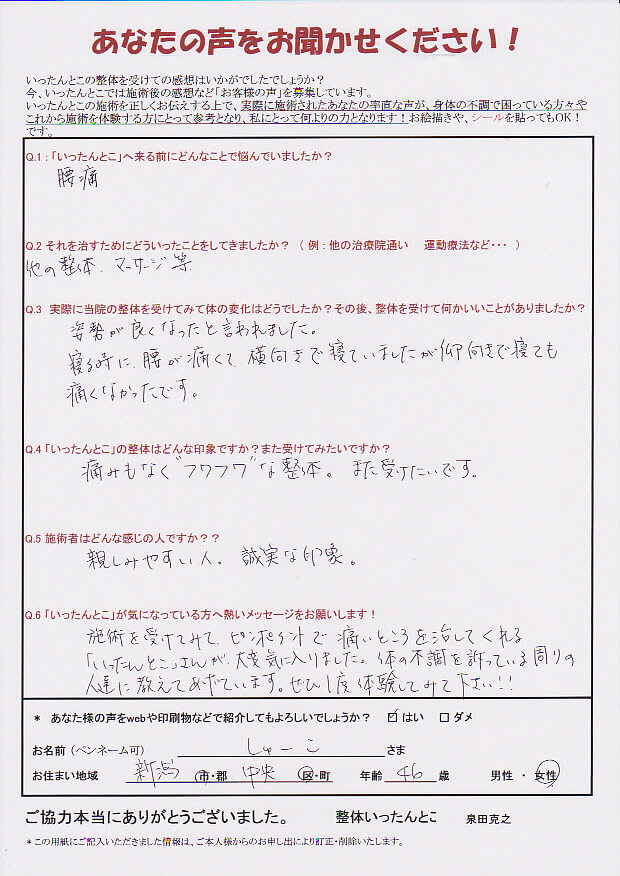 あなたの声をお聞かせください！
いったんとこの整体を受けての感想はいかがでしたでしょうか？
今、いったんとこでは施術後の感想など「お客様の声」を募集しています。
いったんとこの施術を正しくお伝えする上で、実際に施術されたあなたの率直な声が、身体の不調で困っている方々や
これから施術を体験する方にとって参考となり、私にとって何よりの力となります！お絵描きや、シールを貼ってもOK！
です。
Q.1：「いったんとこ」へ来る前にどんなことで悩んでいましたか？
腰痛
Q.2 それを治すためにどういったことをしてきましたか？（例：他の治療院通い　運動療法など・・・ ）
他の整体、マッサージ等
Q.3 実際に当院の整体を受けてみて体の変化はどうでしたか？その後、整体を受けて何かいいことがありましたか？
姿勢が良くなったと言われました。
寝る時に、腰が痛くて、横向きで寝ていましたが仰向きで寝ても
痛くなかったです。
Q.4「いったんとこ」の整体はどんな印象ですか？また受けてみたいですか？
痛みもなく"フワフワ"な整体。また受けたいです。
Q.5 施術者はどんな感じの人ですか？？
親しみやすい人。誠実な印象。
Q.6「いったんとこ」が気になっている方へ熱いメッセージをお願いします！
施術を受けてみて、ピンポイントで痛いところを治してくれる
「いったんとこ」さんが、大変気に入りました。体の不調を訴っている周りの
人達に教えてあげています。ぜひ1度体験してみて下さい!!
* あなた様の声をwebや印刷物などで紹介してもよろしいでしょうか？ ☑はい □ダメ
お名前（ペンネーム可） しゅーこ さま
お住まい地域 新潟 市・郡 中央 区・町 年齢 46 歳 男性 ・ 女性
ご協力本当にありがとうございました。 整体いったんとこ 泉田克之
*この用紙にご記入いただきました情報は、ご本人様からのお申し出により訂正・削除いたします。